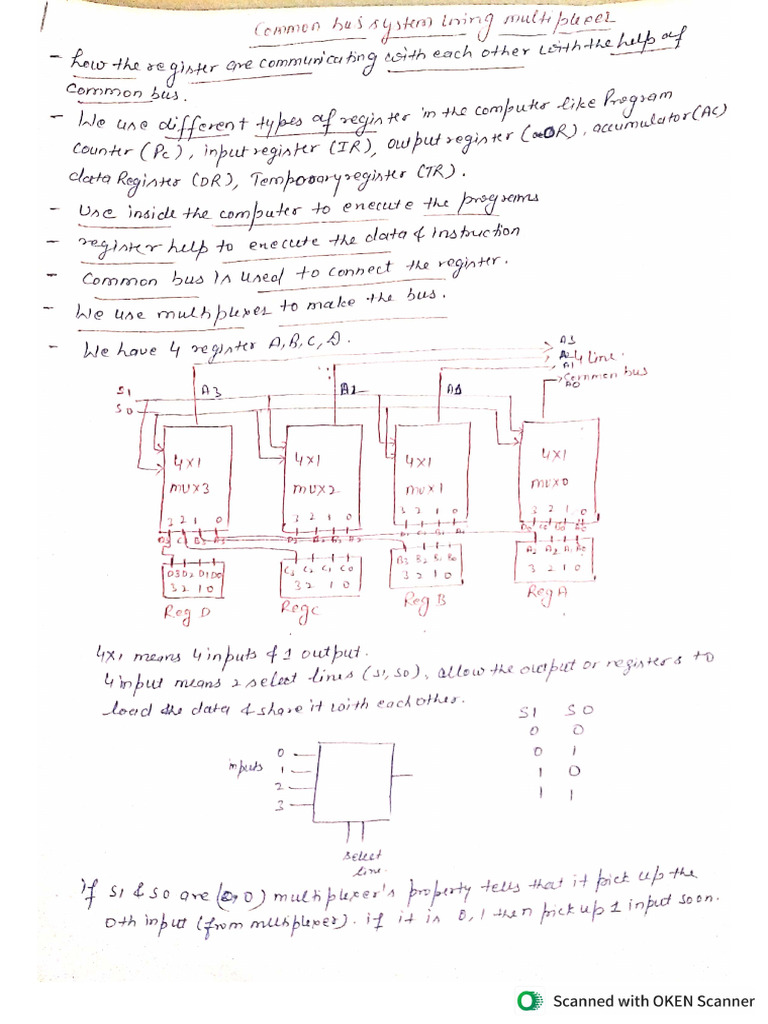 Common bus system using multiplexer
- how the register are communicating with each other with the help of
common bus.
- We use different types of register in the computer like Program
counter (PC), input register (IR), output register (OR), accumulator (AC)
data Register (DR), Temporary register (TR).
- Use inside the computer to execute the programs
- register help to execute the data & instruction
- Common bus is used to connect the register.
- We use multiplexer to make the bus.
- We have 4 register A, B, C, D.
A3
A2 4 line.
A1
Common bus
A0
S1
S0
A3 A2 A1
4x1 4x1 4x1 4x1
mux3 mux2 mux1 mux0
3 2 1 0 3 2 1 0 3 2 1 0 3 2 1 0
D0 C0 B0 A0
D3 D2 D1 D0 C3 C2 C1 C0 B3 B2 B1 B0 A3 A2 A1 A0
3 2 1 0 3 2 1 0 3 2 1 0 3 2 1 0
Reg D Reg C Reg B Reg A
4x1 means 4 inputs & 1 output.
4 input means 2 select lines (S1, S0), allow the output or registers to
load the data & share it with each other.
S1 S0
0 0
0 1
1 0
1 1
inputs
0
1
2
3
select
line.
if S1 & S0 are (0,0) multiplexer's property tells that it pick up the
0th input (from multiplexer). if it is 0,1 then pick up 1 input soon.
Scanned with OKEN Scanner